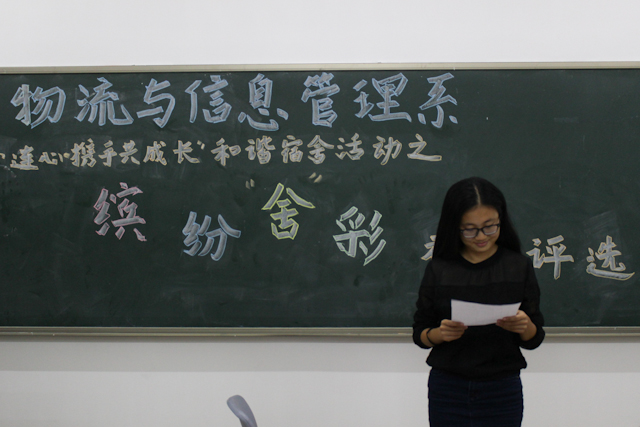 物流与信息管理系
连心·携手共成长”和谐宿舍活动之
缤纷“舍”彩 评选